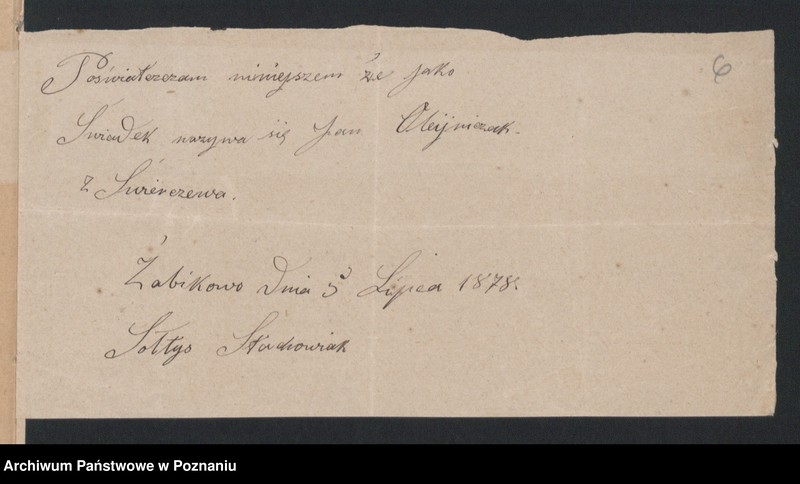 6
Poświatczam niniejszem że jako
Świadek nazywa się Jan Oleijniczak.
z Świerczewa.
Żabikowo Dnia 5 Lipca 1878.
Sołtys Stachowiak
Archiwum Państwowe w Poznaniu